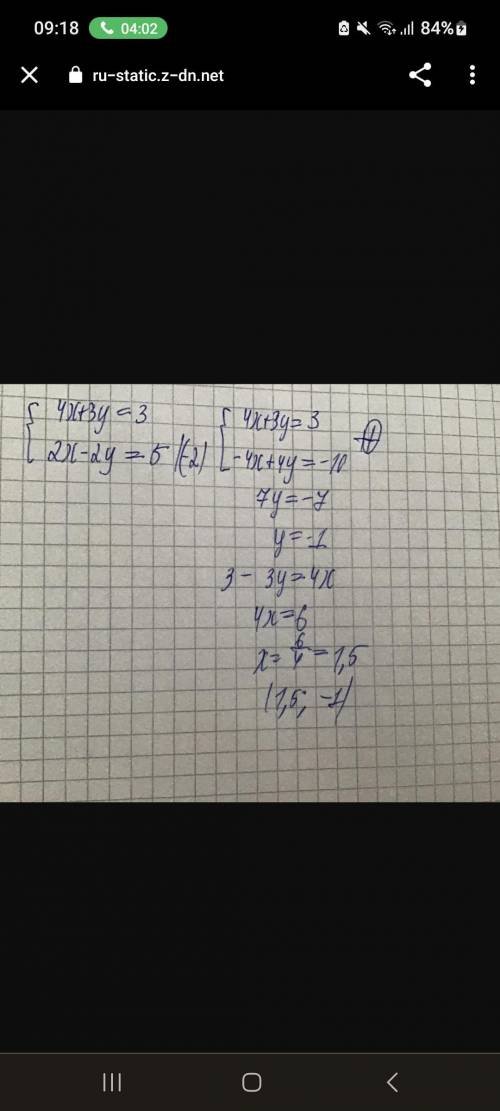 09:18 04:02 84%
ru-static.z-dn.net
4x+3y=3
2x-2y=5 |(-2)
4x+3y=3
-4x+4y=-10
7y=-7
y=-1
3-3y=4x
4x=6
x=6/4=1,5
(1,5; -1)